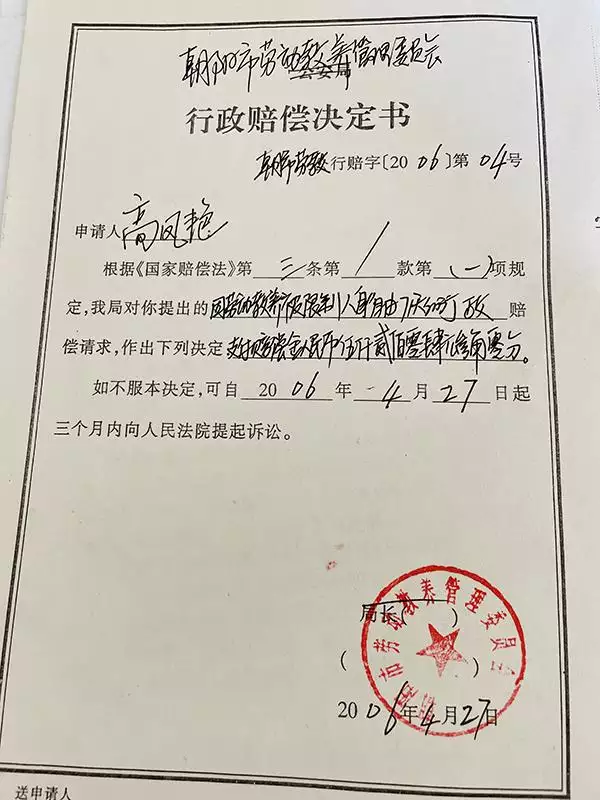 朝阳市劳动教养管理委员会
公安局
行政赔偿决定书
朝阳劳教行赔字〔2006〕第04号
申请人高凤艳
根据《国家赔偿法》第三条第1款第(一)项规
定，我局对你提出的因劳动教养被限制人身自由 赔
偿请求，作出下列决定支付赔偿金人民币伍仟贰佰零肆元 角零分。
如不服本决定，可自2006年4月27日起
三个月内向人民法院提起诉讼。
局长( )
( )
市劳动教养管理委员会
2006年4月27日
送申请人